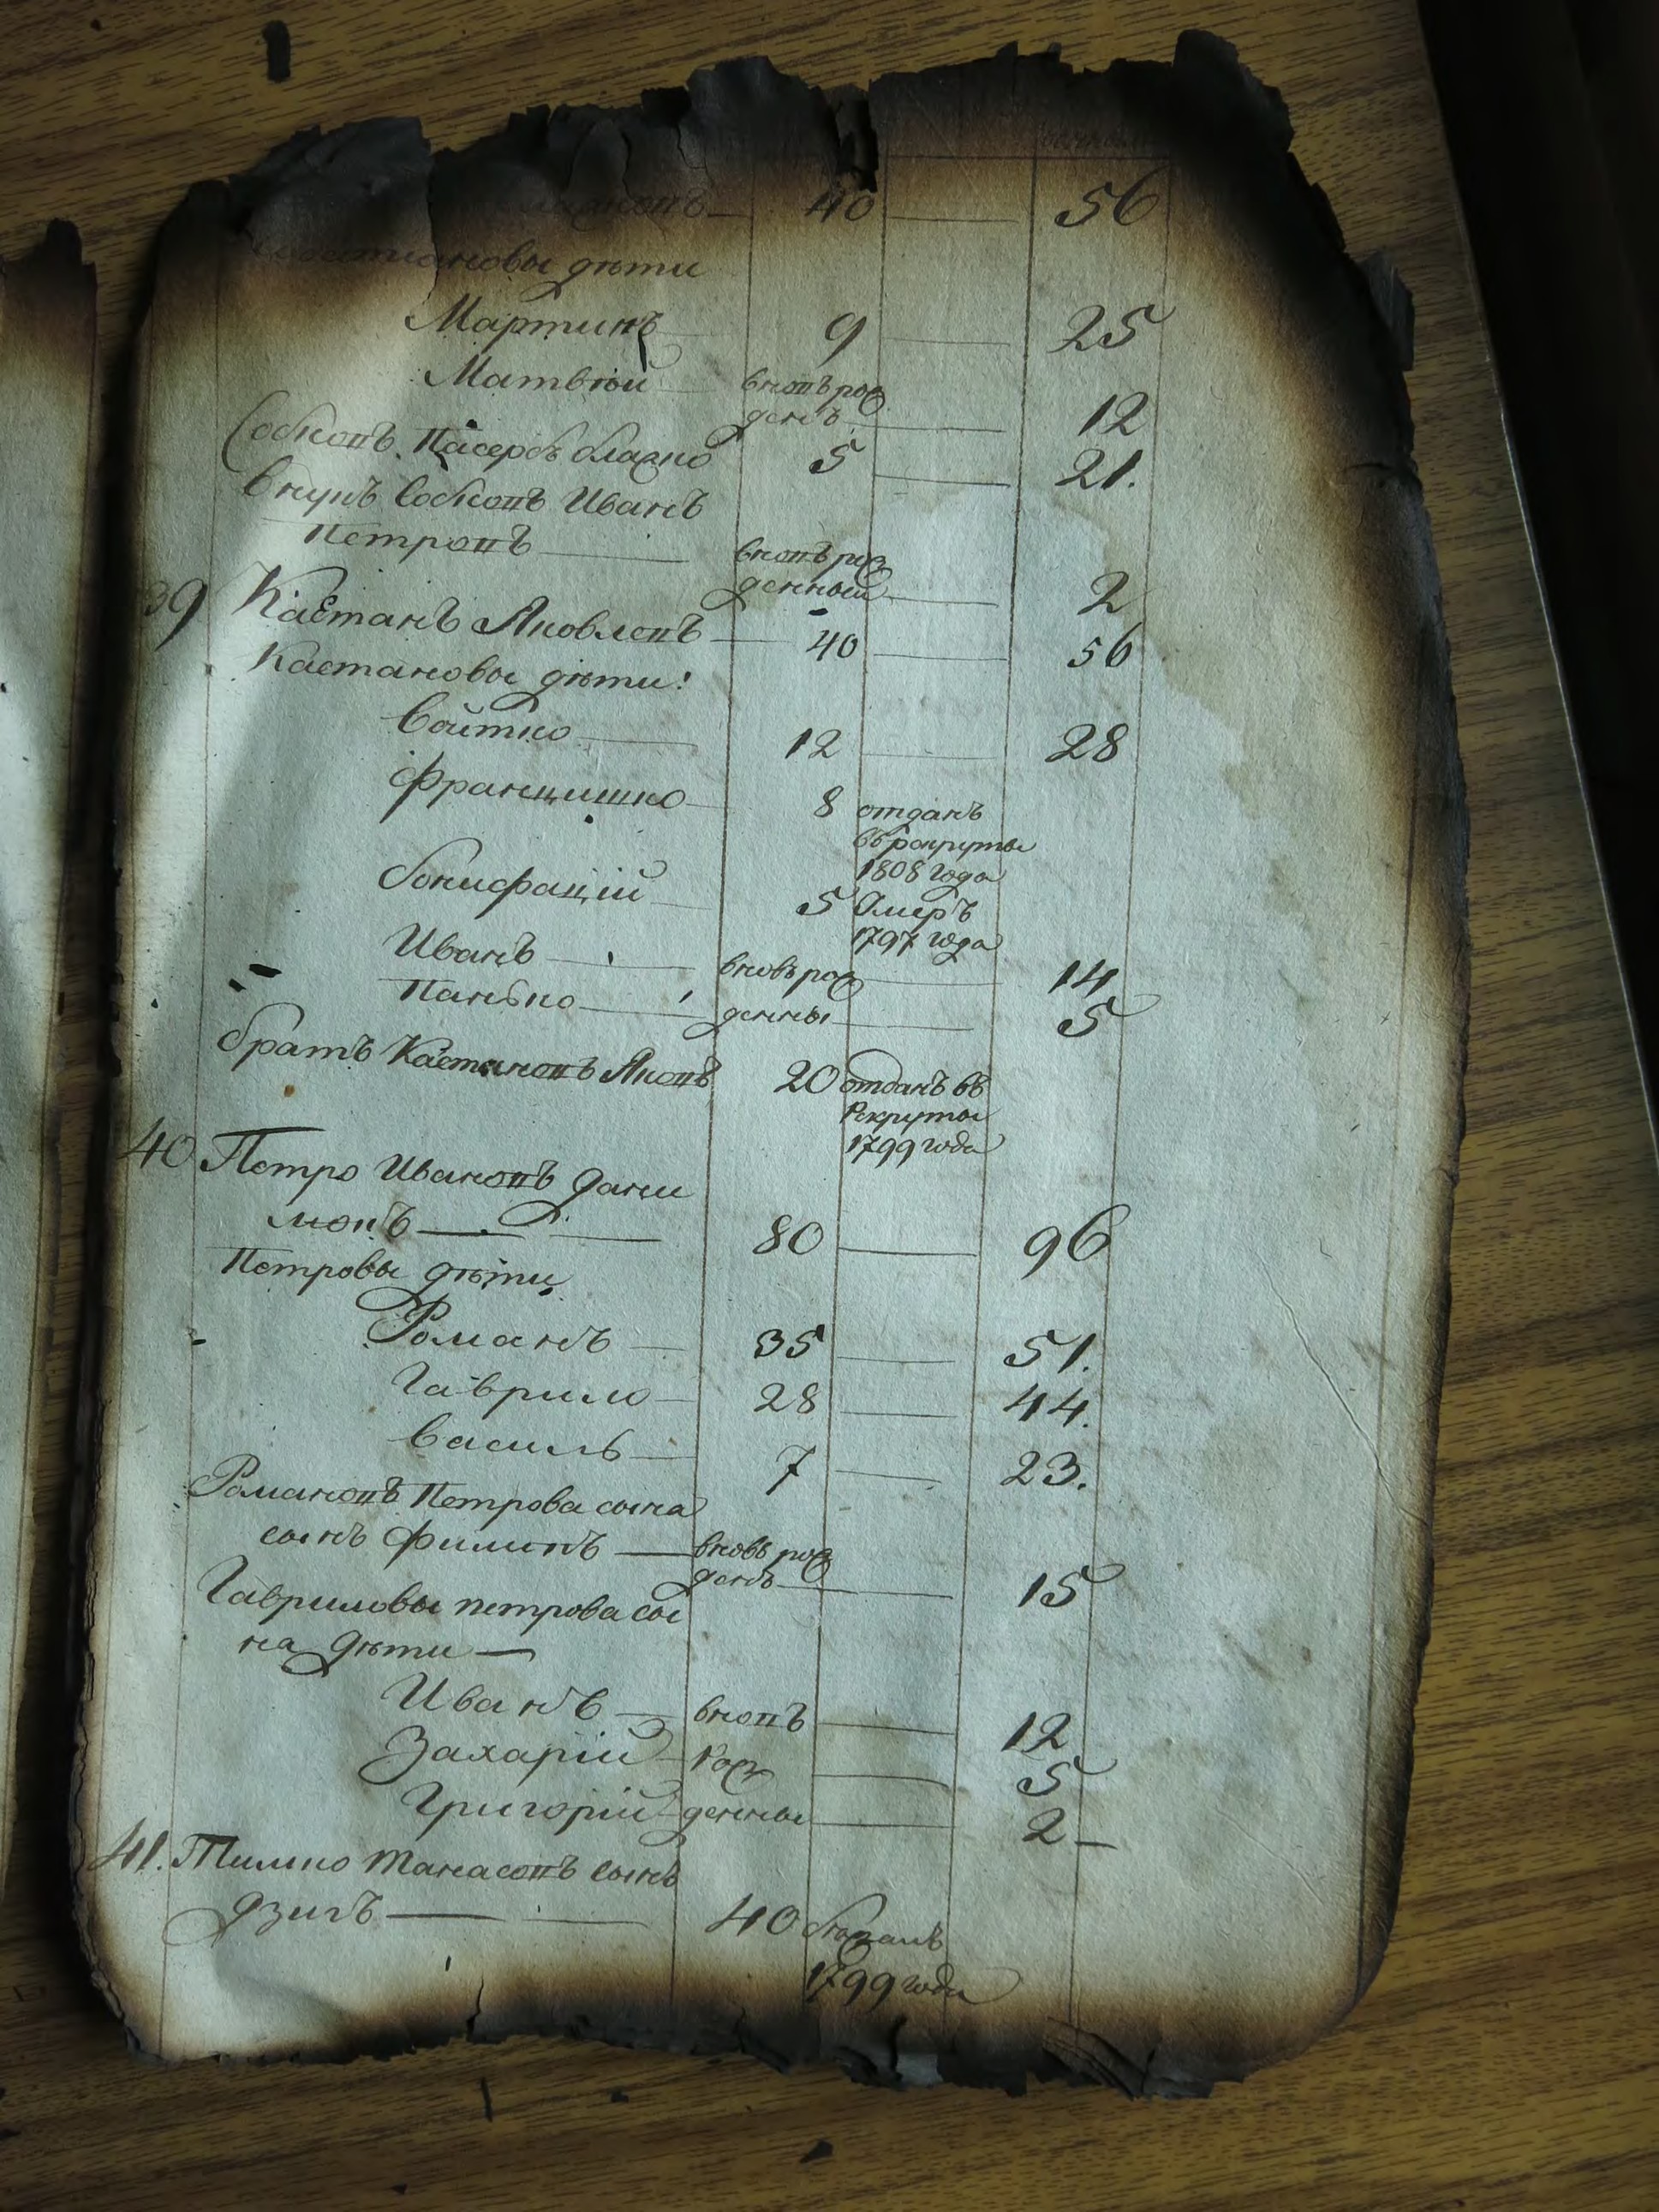 40 — 56
дѣти
Мартинъ 9 — 25
Матвѣй — вновъ рож
денъ — 12
Собковъ Пасербъ блажко 5 — 21.
Внукъ Собковъ Иванъ
Петровъ — вновъ рож
денный — 2
39 Каетанъ Яковлевъ — 40 — 56
Каетановы дѣти:
Войтко — 12 — 28
Францишко — 8 отданъ
въ рекруты
1808 года
Бонифацій — 5 Умеръ
1797 года
Иванъ — вновь рож — 14
Панько — денны — 5
братъ Каетановъ Яковъ 20 отданъ въ
Рекруты
1799 года
40 Петро Ивановъ Дани
мовъ — 80 — 96
Петровы дѣти
Романъ — 35 — 51.
Гаврило — 28 — 44.
Василь — 7 — 23.
Романовъ Петрова сына
сынъ Филипъ — вновь рож
денъ — 15
Гавриловы петрова сы
на дѣти —
Иванъ — вновъ — 12
Захарій — рож — 5
Григорій — денны — 2 —
41. Тимко Танасовъ сынъ
40
1799 года